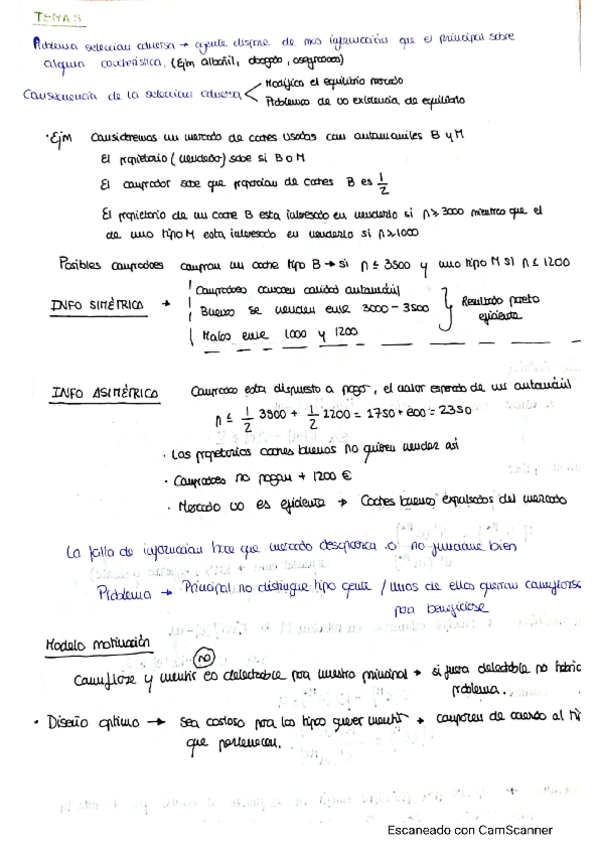 TEMA 5
Problema seleccion adversa → agente dispone de mas informacion que el principal sobre
alguna caracteristica. (Ejm albañil, abogado, aseguradora)
Consecuencia de la seleccion adversa < Modifica el equilibrio mercado
Problemas de no existencia de equilibrio
· Ejm Consideremos un mercado de coches usados con automoviles B y M
El propietario (vendedor) sabe si B o M
El comprador sabe que proporcion de coches B es 1/2
El propietario de un coche B esta interesado en venderlo si p ≥ 3000 mientras que el
de uno tipo M esta interesado en venderlo si p ≥ 1000
Posibles compradores compran un coche tipo B → si p ≤ 3500 y uno tipo M si p ≤ 1200
INFO SIMÉTRICA → Compradores conocen calidad automóvil
Buenos se venden entre 3000 - 3500
Malos entre 1000 y 1200
} Resultado pareto
eficiente
INFO ASIMÉTRICA Comprador esta dispuesto a pagar, el valor esperado de un automóvil
p ≤ 1/2 3500 + 1/2 1200 = 1750 + 600 = 2350
· Los propietarios coches buenos no quieren vender asi
· Compradores no pagan + 1200 €
· Mercado no es eficiente → Coches buenos expulsados del mercado
La falta de informacion hace que mercado desaparezca o no funcione bien
Problema → Principal no distingue tipo gente / unos de ellos querran camuflarse
para beneficiarse
Modelo motivación
no
Camuflarse y mentir es detectable para nuestro principal → si fuera detectable no habria
problema.
· Diseño optimo → sea costoso para los tipos querer mentir →
que pertenecen.
Escaneado con CamScanner